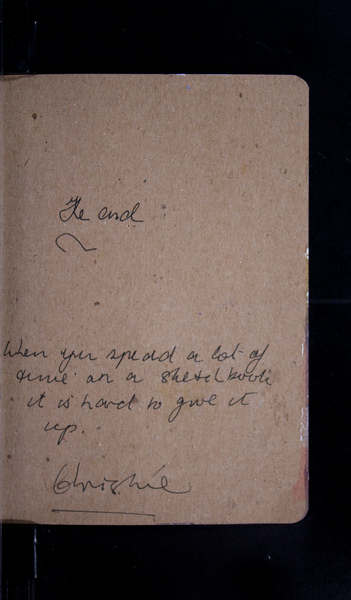 The end
When you spend a lot of
time on a sketchbook
it is hard to give it
up.
Christie